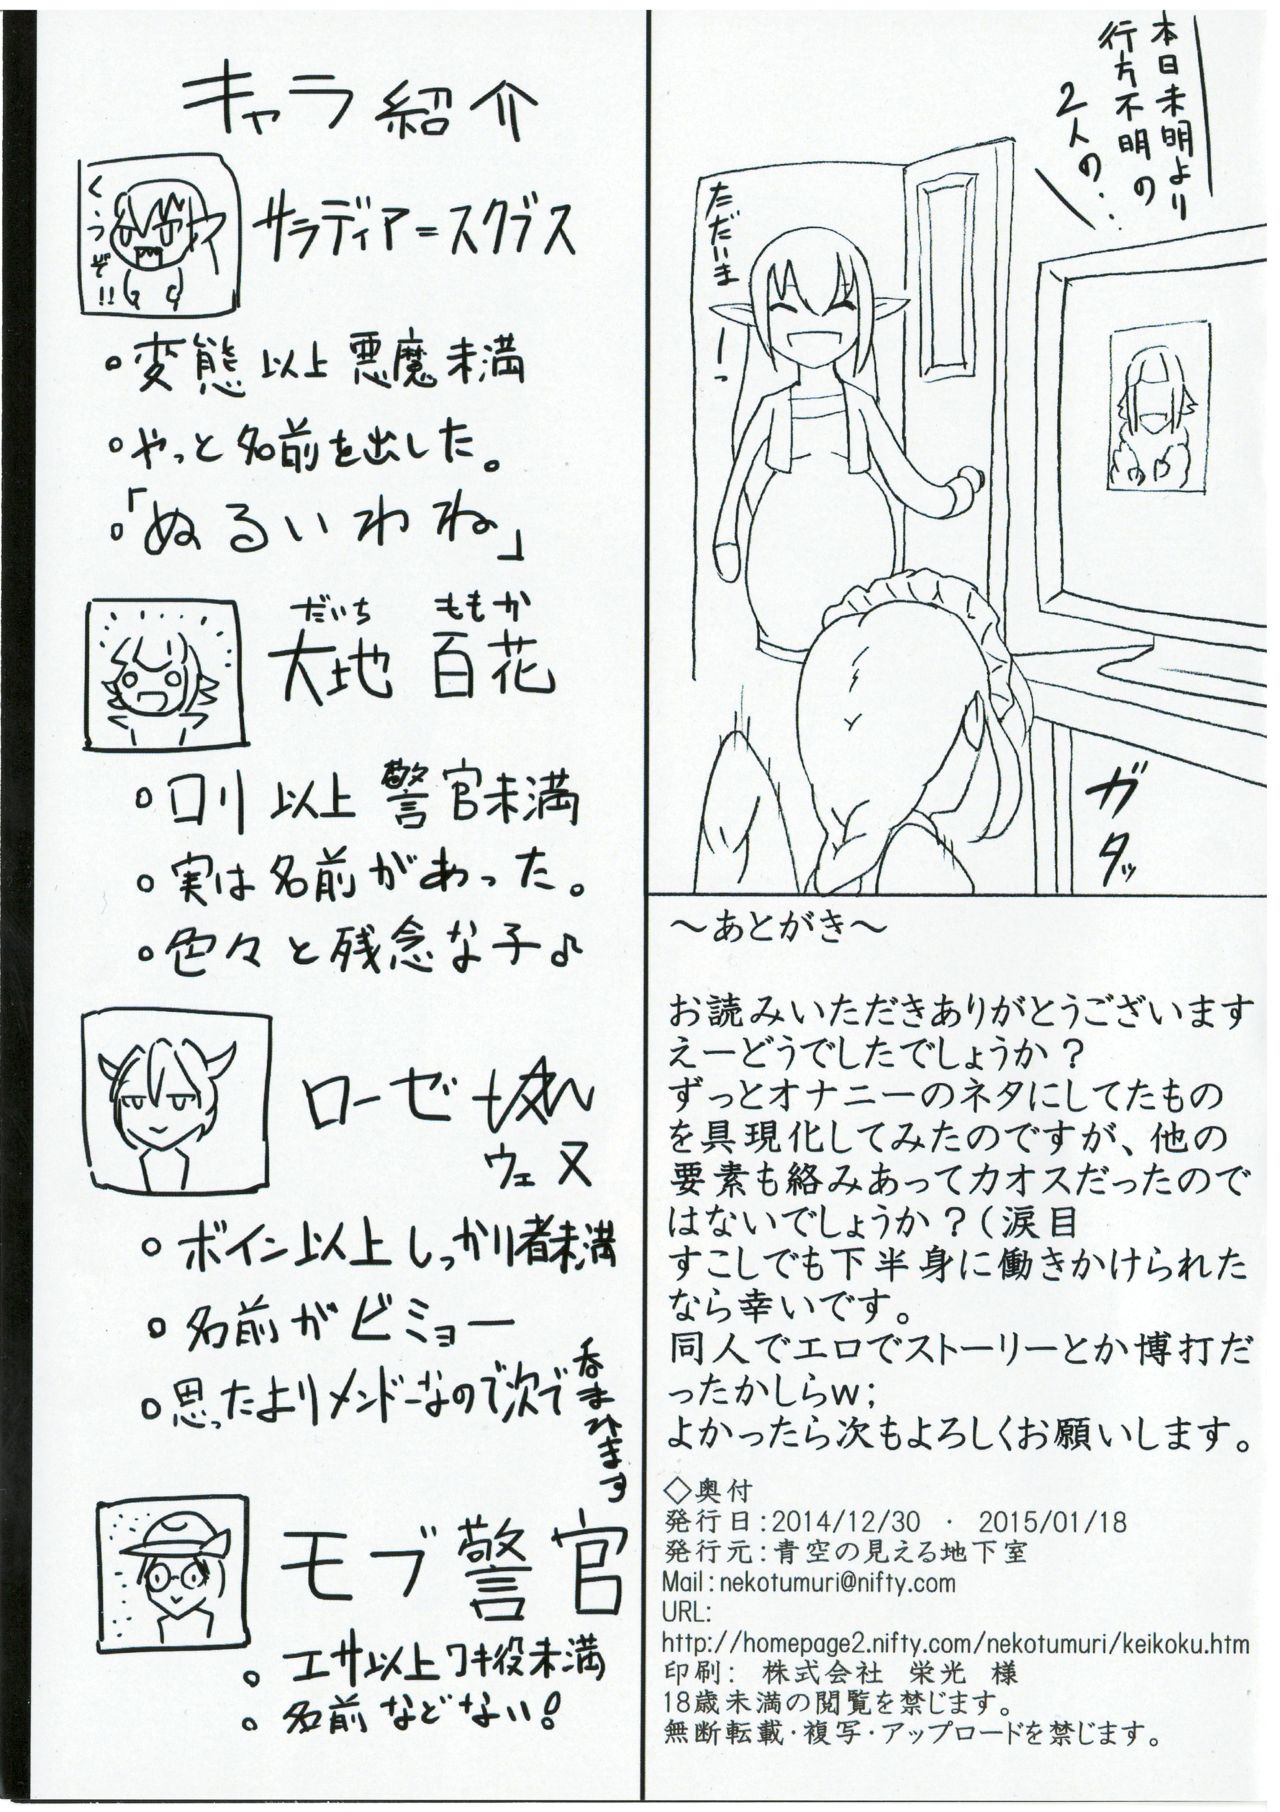 本日未明より
行方不明の
2人の・・
ただいまーっ
ガタッ
キャラ紹介
くうぞ!!
サラディア=スクブス
・変態以上悪魔未満
・やっと名前を出した。
・「ぬるいわね」
だいち ももか
大地 百花
・ロリ以上 警官未満
・実は名前があった。
・色々と残念な子♪
ローゼ
ウェヌ
・ボイン以上しっかり者未満
・名前がビミョー
・思ったよりメンドーなので次で
呑まれます
モブ警官
・エサ以上ワキ役未満
・名前などない!
～あとがき～
お読みいただきありがとうございます
えーどうでしたでしょうか？
ずっとオナニーのネタにしてたもの
を具現化してみたのですが、他の
要素も絡みあってカオスだったので
はないでしょうか？(涙目
すこしでも下半身に働きかけられた
なら幸いです。
同人でエロでストーリーとか博打だ
ったかしらw;
よかったら次もよろしくお願いします。
◇奥付
発行日:2014/12/30 ・ 2015/01/18
発行元:青空の見える地下室
Mail:nekotumuri@nifty.com
URL:
http://homepage2.nifty.com/nekotumuri/keikoku.htm
印刷: 株式会社 栄光 様
18歳未満の閲覧を禁じます。
無断転載・複写・アップロードを禁じます。